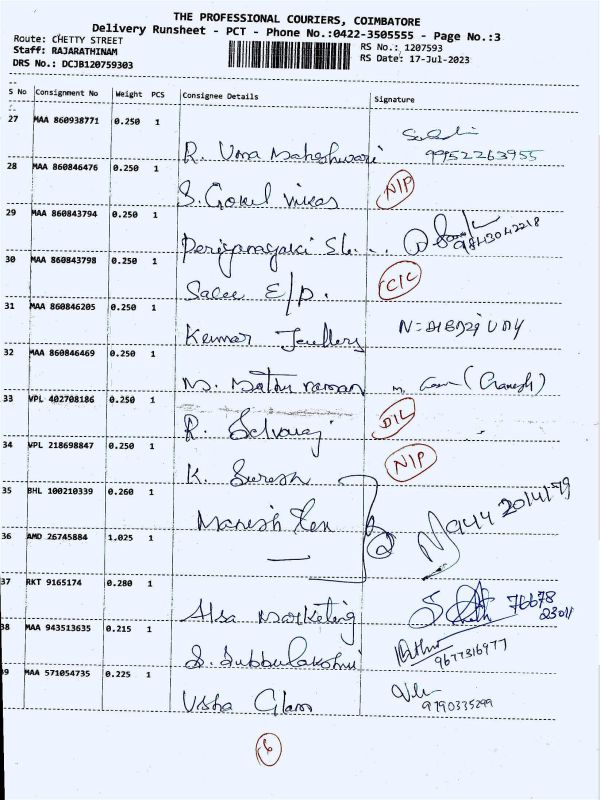 THE PROFESSIONAL COURIERS, COIMBATORE
Delivery Runsheet - PCT - Phone No.:0422-3505555 - Page No.:3
Route: CHETTY STREET
RS No.: 1207593
Staff: RAJARATHINAM
RS Date: 17-Jul-2023
DRS No.: DCJB120759303
S No Consignment No Weight PCS Consignee Details Signature
27 MAA 860938771 0.250 1
R. Uma Maheshwari 9952263955
28 MAA 860846476 0.250 1
S. Gokul Vikas N/P
29 MAA 860843794 0.250 1
Periyanayaki Sh... 9843042218
30 MAA 860843798 0.250 1
Salee E/p. C/C
31 MAA 860846205 0.250 1
Kumar Jewellery
32 MAA 860846469 0.250 1
M. Mathu raman (Ganesh)
33 VPL 402708186 0.250 1
R. Selvaraj D/L
34 VPL 218698847 0.250 1
K. Suresh N/P
35 BHL 100210339 0.260 1
Manesh Jen
36 AMD 26745884 1.025 1
37 RKT 9165174 0.280 1
Alsa Marketing 76678
23011
38 MAA 943513635 0.215 1
S. Subbulakshmi 9677316977
39 MAA 571054735 0.225 1
Usha Glass 9790335299
6